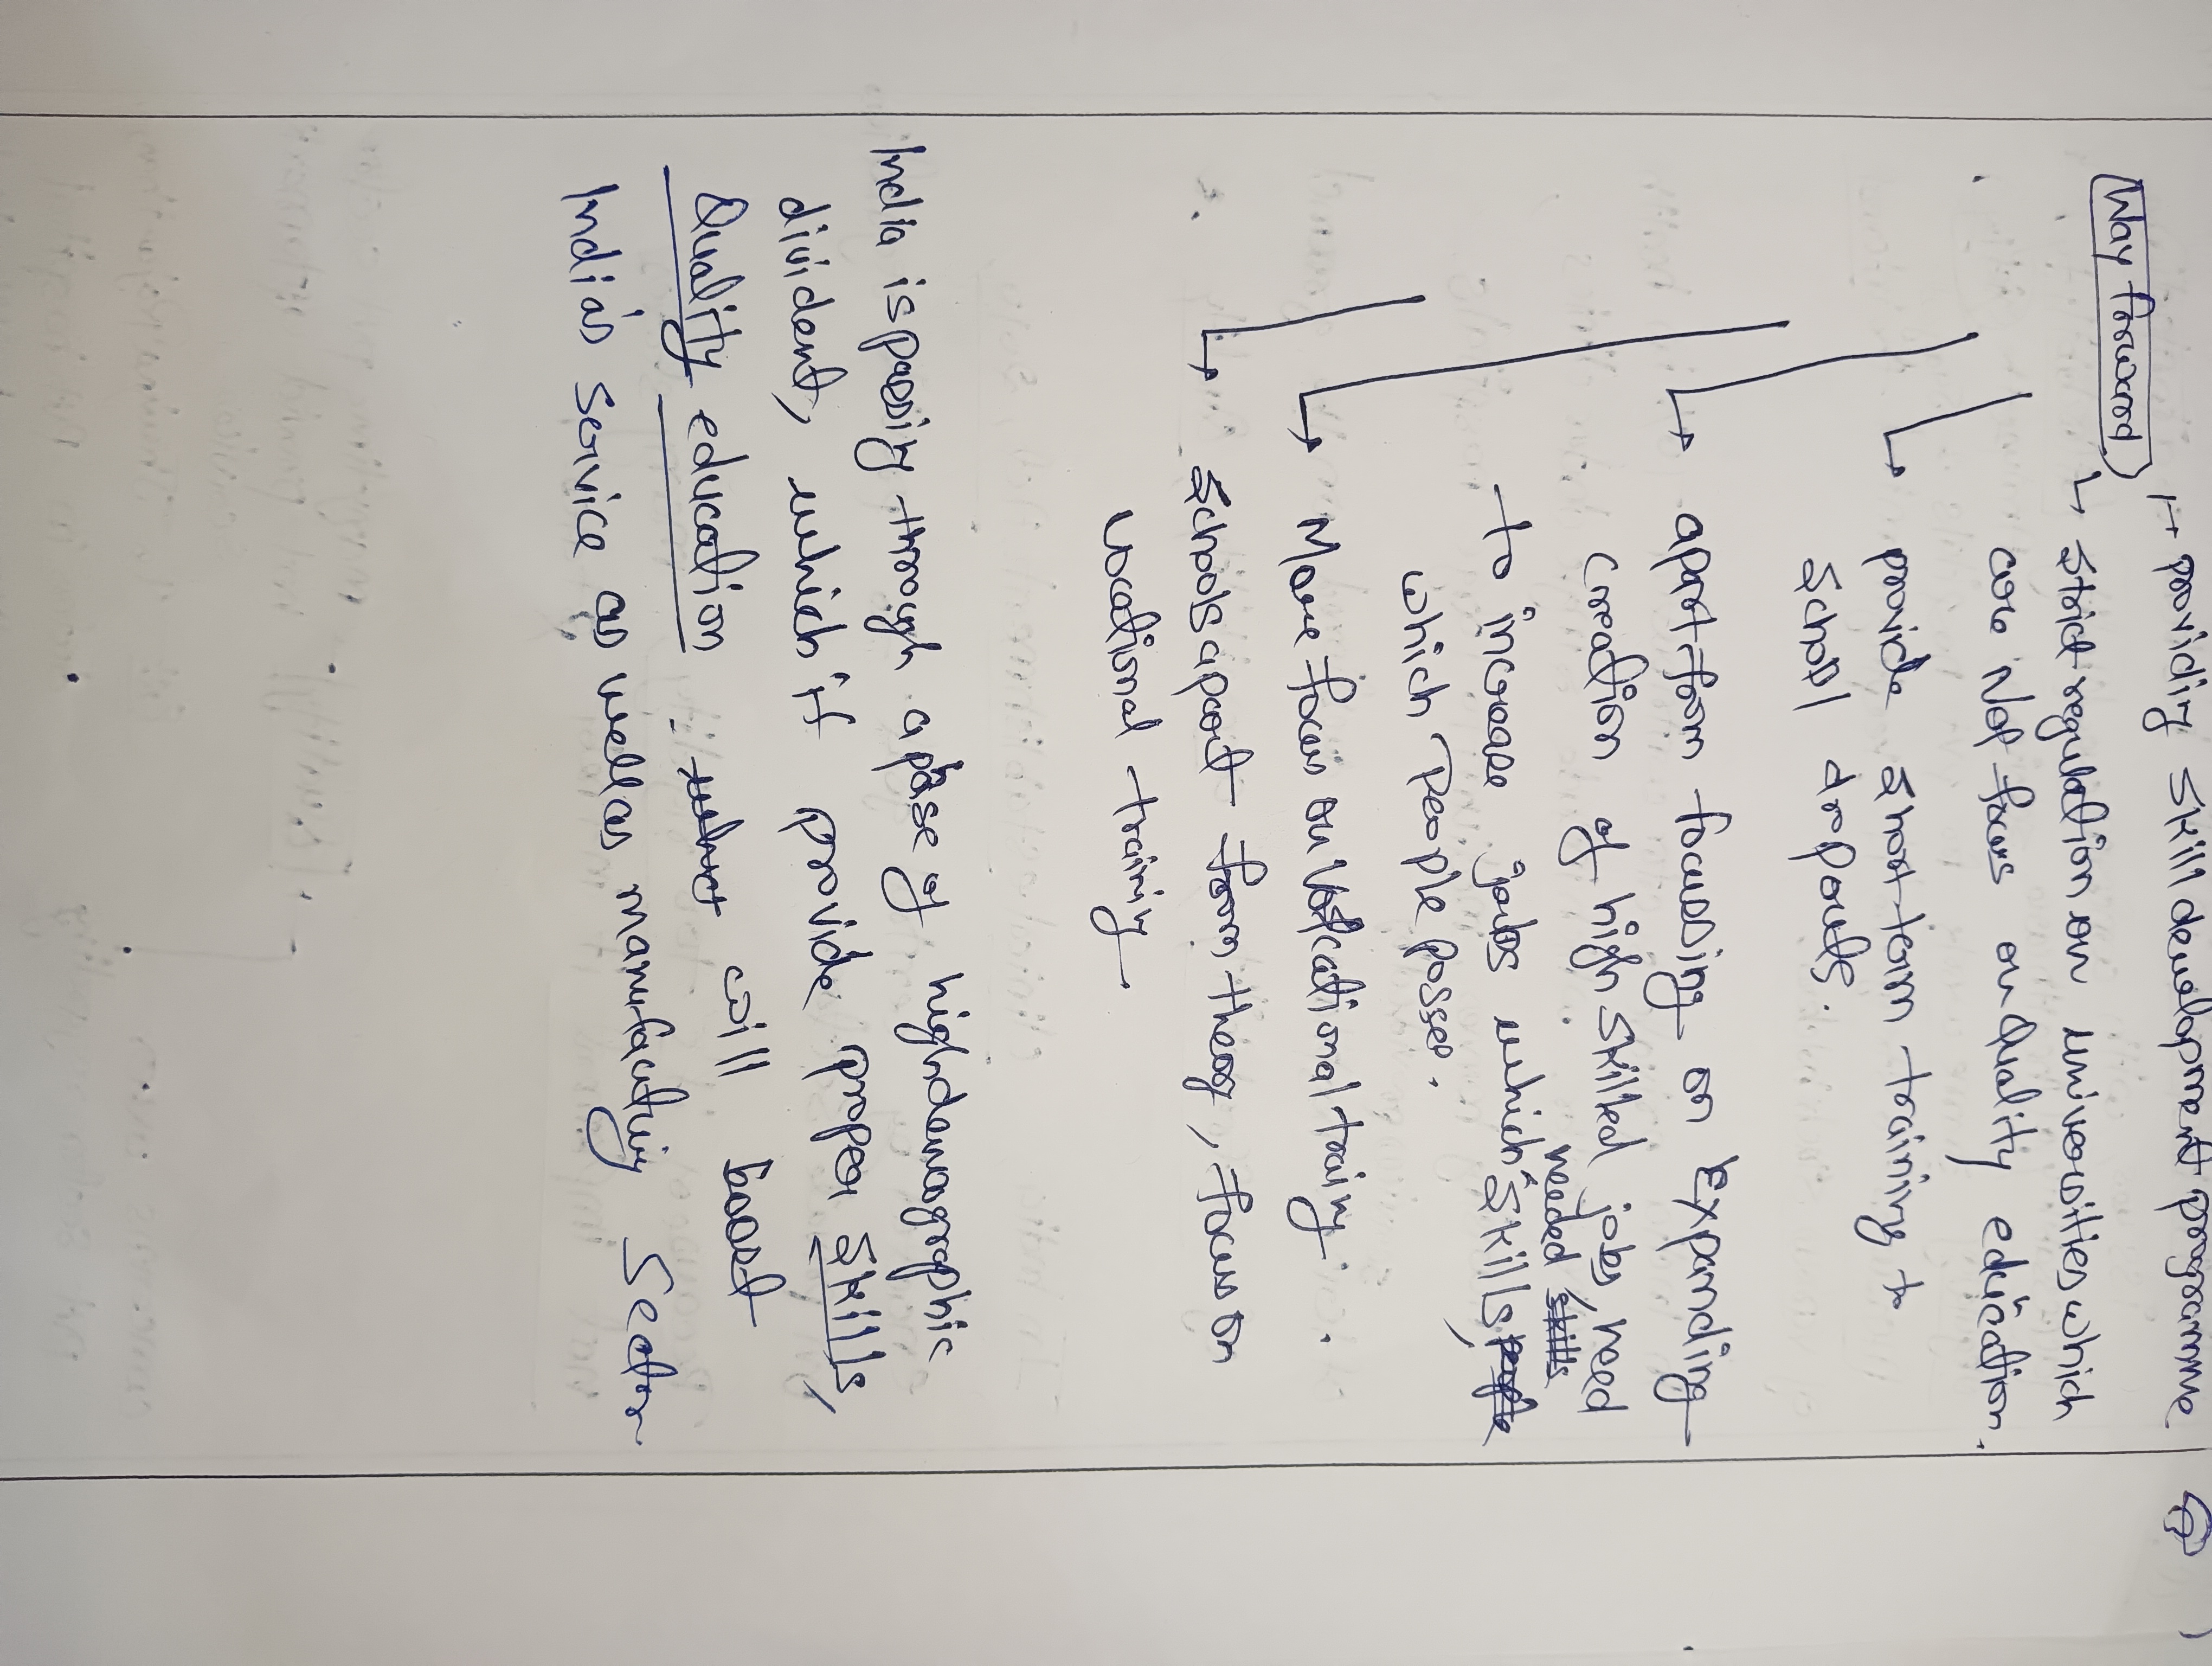 providing skill development programme.
Way forward
strict regulation on universities which
are Not focus on Quality education.
provide short term training to
School dropouts.
apart from focusing on Expanding
creation of high skilled jobs, need
to increase jobs which needed skills,
which People posses.
More focus on Vocational training.
Schools apart from theory, focus on
vocational training.
India is passing through a phase of high demographic
divident, which if provide proper skills,
Quality education will boost
India's service as well as manufacturing Sector